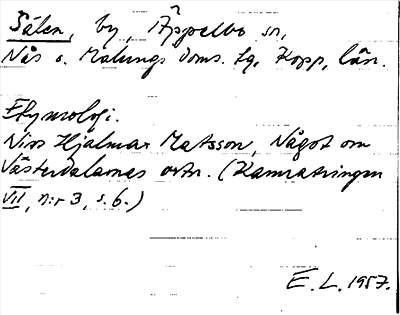 Sälen, by, Äppelbo sn,
Nås o. Malungs doms. tg, Kopp. län.
Etymologi.
Nios Hjalmar Matsson, Något om
Västerdalarnas ortn. (Kamratringen
VII, n:r 3, s. 6.)
E. L. 1957.